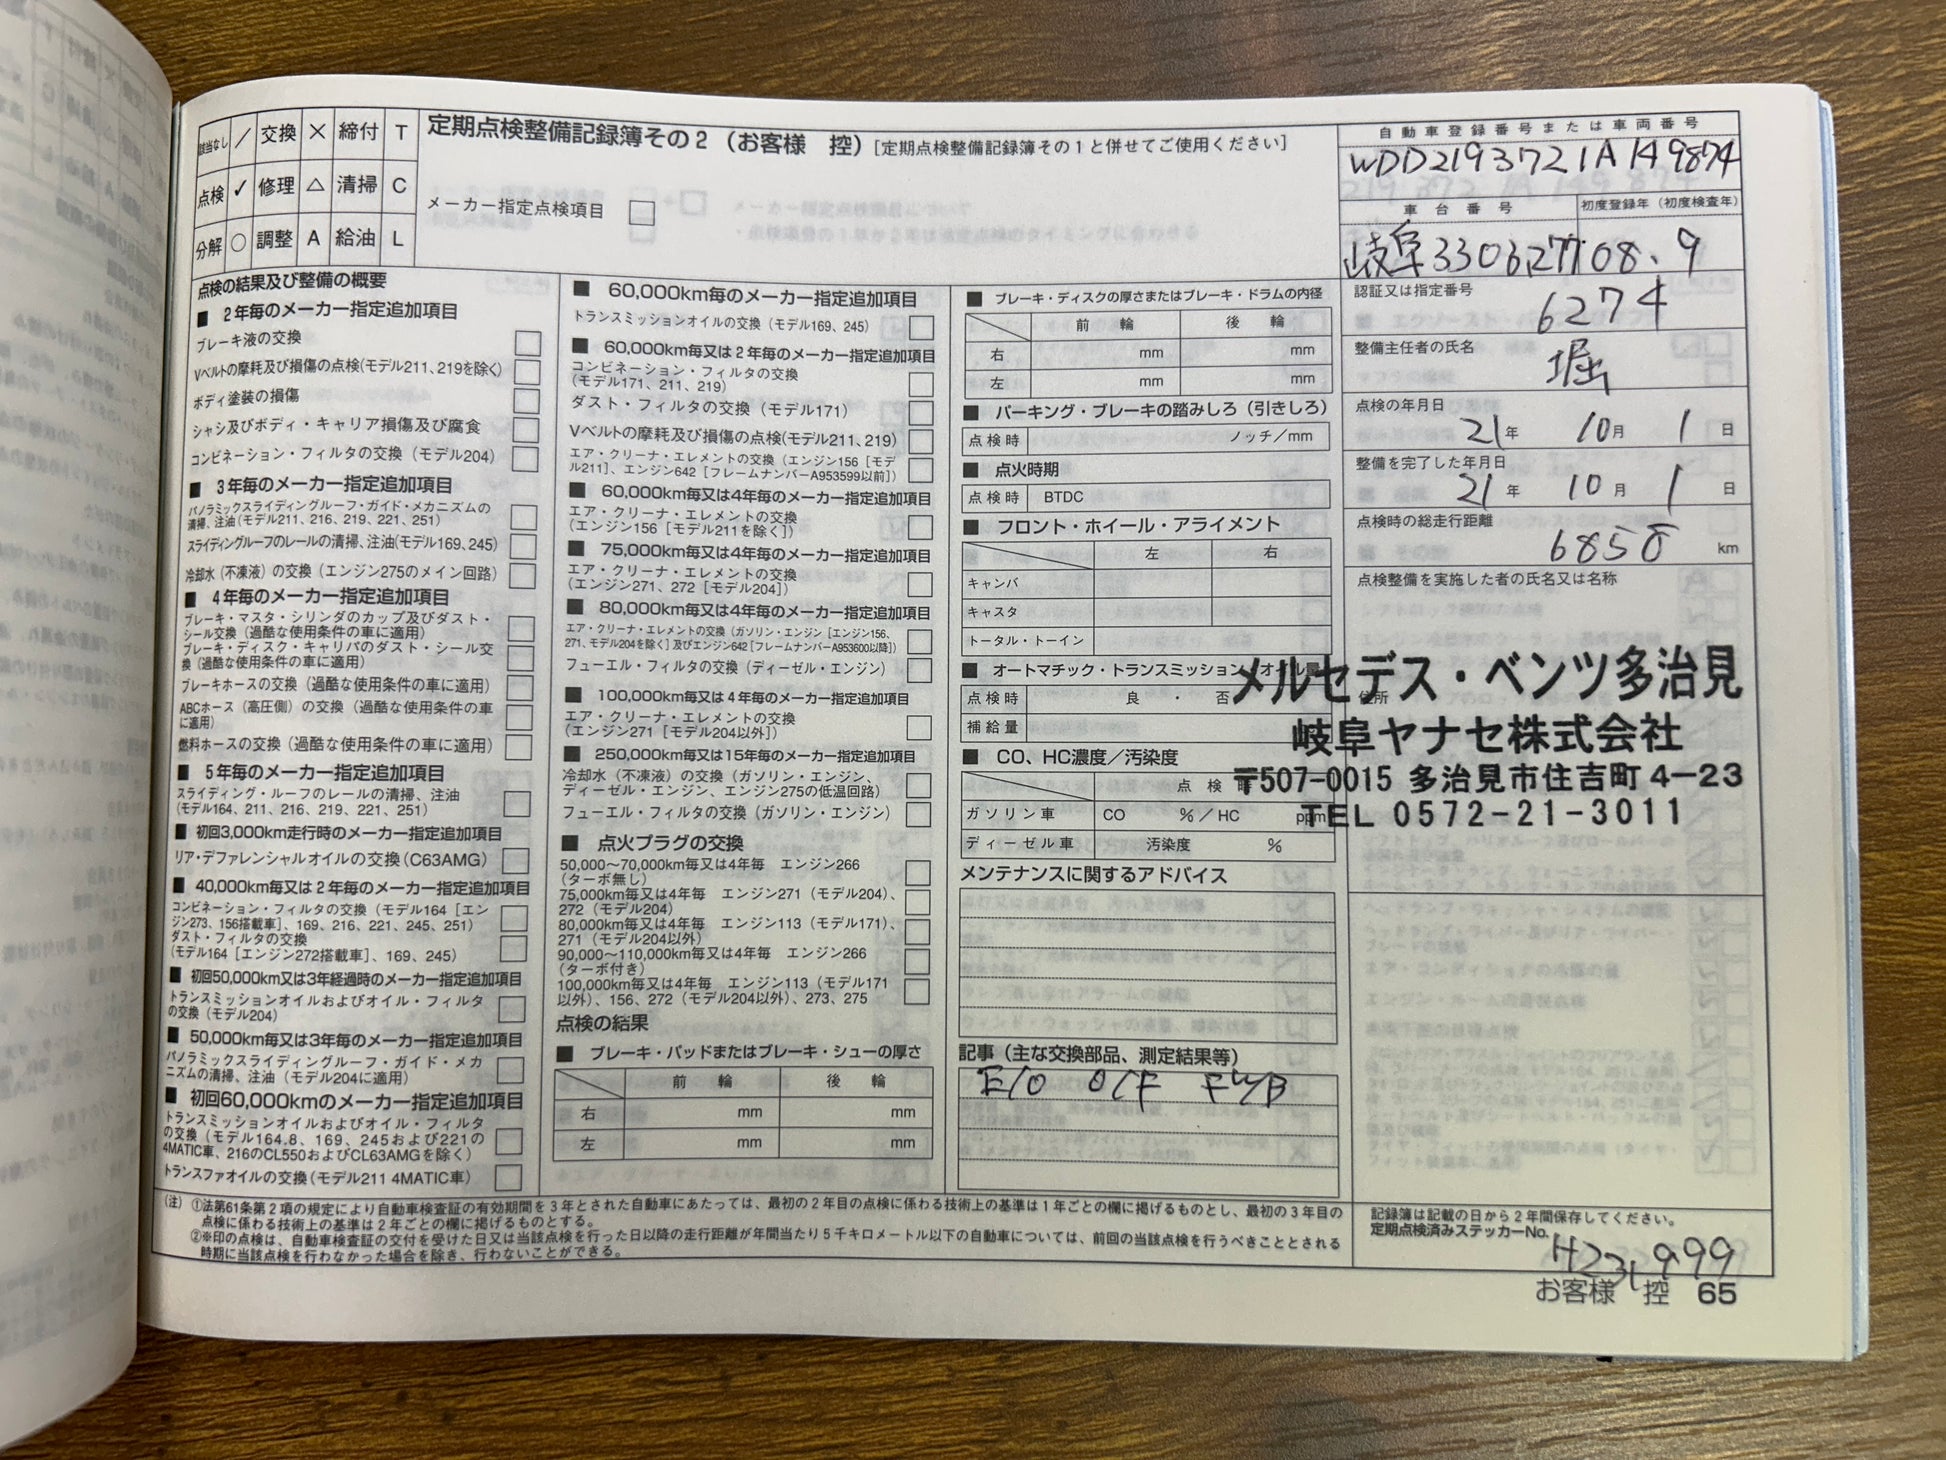 該当なし ／ 交換 × 締付 T
点検 ✓ 修理 △ 清掃 C
分解 ○ 調整 A 給油 L
定期点検整備記録簿その2（お客様　控）[定期点検整備記録簿その1と併せてご使用ください]
メーカー指定点検項目
点検の結果及び整備の概要
■ 2年毎のメーカー指定追加項目
ブレーキ液の交換
Vベルトの摩耗及び損傷の点検(モデル211、219を除く)
ボディ塗装の損傷
シャシ及びボディ・キャリア損傷及び腐食
コンビネーション・フィルタの交換（モデル204）
■ 3年毎のメーカー指定追加項目
パノラミックスライディングルーフ・ガイド・メカニズムの
清掃、注油(モデル211、216、219、221、251)
スライディングルーフのレールの清掃、注油(モデル169、245)
冷却水（不凍液）の交換（エンジン275のメイン回路）
■ 4年毎のメーカー指定追加項目
ブレーキ・マスタ・シリンダのカップ及びダスト・
シール交換（過酷な使用条件の車に適用）
ブレーキ・ディスク・キャリパのダスト・シール交
換（過酷な使用条件の車に適用）
ブレーキホースの交換（過酷な使用条件の車に適用）
ABCホース（高圧側）の交換（過酷な使用条件の車
に適用）
燃料ホースの交換（過酷な使用条件の車に適用）
■ 5年毎のメーカー指定追加項目
スライディング・ルーフのレールの清掃、注油
(モデル164、211、216、219、221、251)
■ 初回3,000km走行時のメーカー指定追加項目
リア・デファレンシャルオイルの交換（C63AMG）
■ 40,000km毎又は2年毎のメーカー指定追加項目
コンビネーション・フィルタの交換（モデル164［エン
ジン273、156搭載車]、169、216、221、245、251）
ダスト・フィルタの交換
(モデル164［エンジン272搭載車]、169、245)
■ 初回50,000km又は3年経過時のメーカー指定追加項目
トランスミッションオイルおよびオイル・フィルタ
の交換（モデル204）
■ 50,000km毎又は3年毎のメーカー指定追加項目
パノラミックスライディングルーフ・ガイド・メカ
ニズムの清掃、注油（モデル204に適用）
■ 初回60,000kmのメーカー指定追加項目
トランスミッションオイルおよびオイル・フィルタ
の交換（モデル164.8、169、245および221の
4MATIC車、216のCL550およびCL63AMGを除く）
トランスファオイルの交換（モデル211 4MATIC車）
■ 60,000km毎のメーカー指定追加項目
トランスミッションオイルの交換（モデル169、245）
■ 60,000km毎又は2年毎のメーカー指定追加項目
コンビネーション・フィルタの交換
（モデル171、211、219）
ダスト・フィルタの交換（モデル171）
Vベルトの摩耗及び損傷の点検(モデル211、219)
エア・クリーナ・エレメントの交換（エンジン156［モデ
ル211]、エンジン642［フレームナンバーA953599以前]）
■ 60,000km毎又は4年毎のメーカー指定追加項目
エア・クリーナ・エレメントの交換
（エンジン156［モデル211を除く]）
■ 75,000km毎又は4年毎のメーカー指定追加項目
エア・クリーナ・エレメントの交換
（エンジン271、272［モデル204]）
■ 80,000km毎又は4年毎のメーカー指定追加項目
エア・クリーナ・エレメントの交換（ガソリン・エンジン［エンジン156、
271、モデル204を除く］及びエンジン642［フレームナンバーA953600以降]）
フューエル・フィルタの交換（ディーゼル・エンジン）
■ 100,000km毎又は4年毎のメーカー指定追加項目
エア・クリーナ・エレメントの交換
（エンジン271［モデル204以外]）
■ 250,000km毎又は15年毎のメーカー指定追加項目
冷却水（不凍液）の交換（ガソリン・エンジン、
ディーゼル・エンジン、エンジン275の低温回路）
フューエル・フィルタの交換（ガソリン・エンジン）
■ 点火プラグの交換
50,000～70,000km毎又は4年毎　エンジン266
（ターボ無し）
75,000km毎又は4年毎　エンジン271（モデル204）、
272（モデル204）
80,000km毎又は4年毎　エンジン113（モデル171）、
271（モデル204以外）
90,000～110,000km毎又は4年毎　エンジン266
（ターボ付き）
100,000km毎又は4年毎　エンジン113（モデル171
以外）、156、272（モデル204以外）、273、275
点検の結果
■ ブレーキ・パッドまたはブレーキ・シューの厚さ
前　輪　後　輪
右　mm　mm
左　mm　mm
■ ブレーキ・ディスクの厚さまたはブレーキ・ドラムの内径
前　輪　後　輪
右　mm　mm
左　mm　mm
■ パーキング・ブレーキの踏みしろ（引きしろ）
点検時　ノッチ／mm
■ 点火時期
点検時　BTDC
■ フロント・ホイール・アライメント
左　右
キャンバ
キャスタ
トータル・トーイン
■ オートマチック・トランスミッション・オイル量
点検時　良　・　否
補給量
■ CO、HC濃度／汚染度
点　検　時
ガソリン車　CO　％／HC　ppm
ディーゼル車　汚染度　％
メンテナンスに関するアドバイス
記事（主な交換部品、測定結果等）
E/O O/F FW/B
自動車登録番号または車両番号
WDD2193721A149874
車台番号　初度登録年（初度検査年）
岐阜330 08.9
認証又は指定番号
6274
整備主任者の氏名
堀
点検の年月日
21年　10月　1日
整備を完了した年月日
21年　10月　1日
点検時の総走行距離
6858 km
点検整備を実施した者の氏名又は名称
メルセデス・ベンツ多治見
住所
岐阜ヤナセ株式会社
〒507-0015 多治見市住吉町4-23
TEL 0572-21-3011
（注）①法第61条第2項の規定により自動車検査証の有効期間を3年とされた自動車にあたっては、最初の2年目の点検に係わる技術上の基準は1年ごとの欄に掲げるものとし、最初の3年目の
点検に係わる技術上の基準は2年ごとの欄に掲げるものとする。
②※印の点検は、自動車検査証の交付を受けた日又は当該点検を行った日以降の走行距離が年間当たり5千キロメートル以下の自動車については、前回の当該点検を行うべきこととされる
時期に当該点検を行わなかった場合を除き、行わないことができる。
記録簿は記載の日から2年間保存してください。
定期点検済みステッカーNo.
お客様　控　65